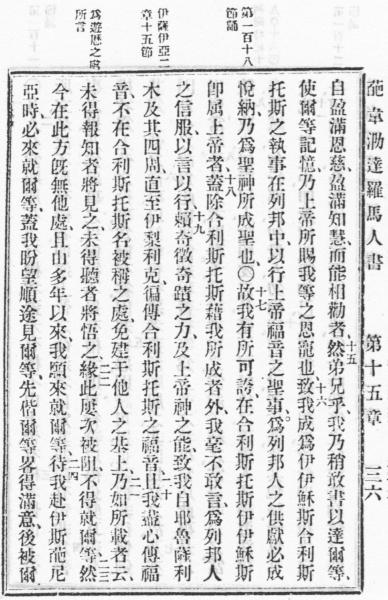 葩韋泐達羅馬人書　第十五章　三六
第一百十八
節誦
伊薩伊亞二
章十五節
爲遊歷之處
所言
自盈滿恩慈、盈滿知慧、而能相勸者、十五然弟兄乎、我乃稍敢書以達爾等、
使爾等記憶、乃上帝所賜我等之恩寵也、十六致我成爲伊伊穌斯合利斯
托斯之執事、在列邦中、以行上帝福音之聖事、爲列邦人之供獻必成
悅納、乃爲聖神所成聖也、○十七故我有所可誇、在合利斯托斯伊伊穌斯
卽屬上帝者、十八蓋除合利斯托斯藉我所成者外、我毫不敢言、爲列邦人
之信服、以言以行、十九賴奇徵奇蹟之力、及上帝神之能、致我自耶魯薩利
木及其四周、直至伊梨利克、徧傳合利斯托斯之福音、二十且我盡心傳福
音、不在合利斯托斯名被稱之處、免建于他人之基上、二一乃如所載者云、
未得報知者將見之、未得聽者將悟之、二二緣此屢次被阻、不得就爾等、二三然
今在此方旣無他處、且由多年以來、我願來就爾等、二四待我赴伊斯葩尼
亞時、必來就爾等、蓋我盼望順途見爾等、先偕爾等畧得滿意、後被爾